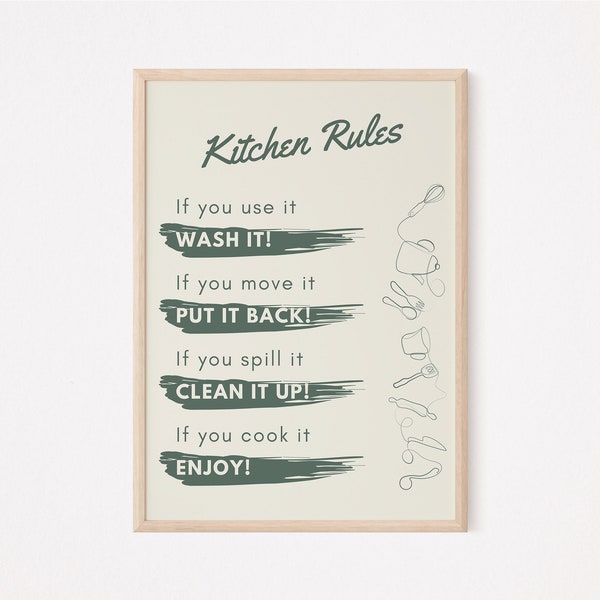 Kitchen Rules
If you use it
WASH IT!
If you move it
PUT IT BACK!
If you spill it
CLEAN IT UP!
If you cook it
ENJOY!